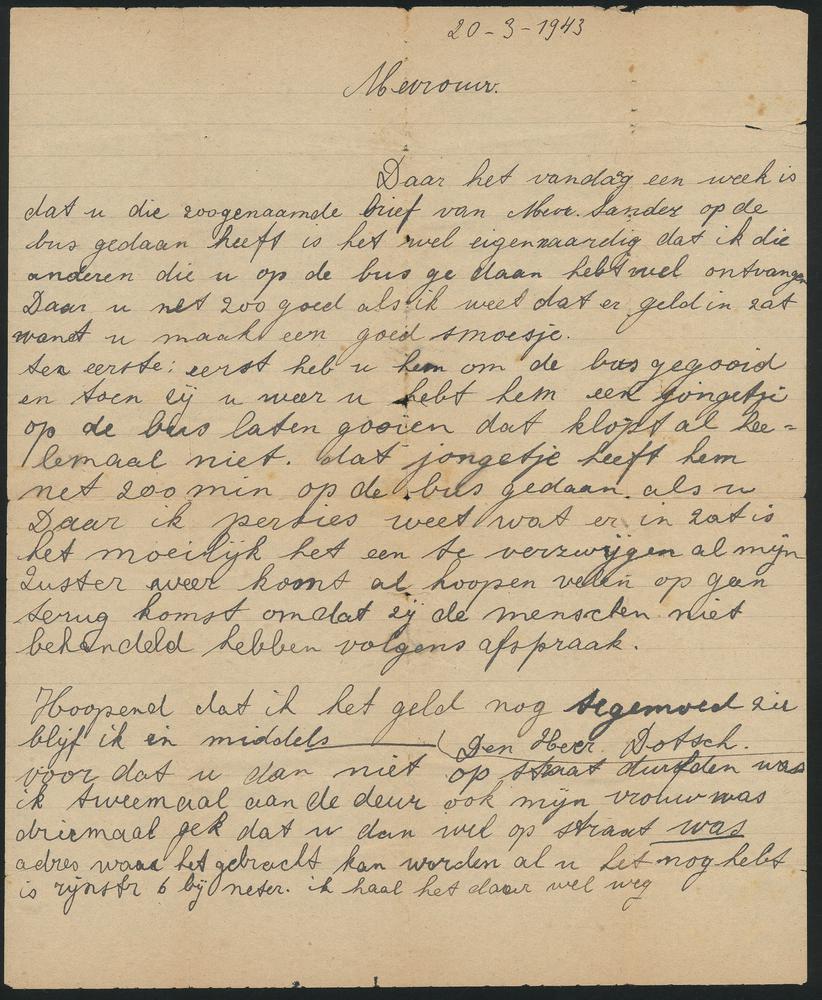 20-3-1943
Mevrouw.
Daar het vandaag een week is
dat u die zoogenaamde brief van Mevr. Sander op de
bus gedaan heeft is het wel eigenaardig dat ik die
anderen die u op de bus ge daan hebt wel ontvangen
Daar u net zoo goed als ik weet dat er geld in zat
want u maak een goed smoesje.
ten eerste: eerst heb u hem om de bus gegooid
en toen zij u weer u hebt hem een jongetje
op de bus laten gooien dat klopt al hee=
lemaal niet. dat jongetje heeft hem
net zoo min op de bus gedaan. als u
Daar ik persies weet wat er in zat is
het moeilijk het een te verzwijgen al mijn
zuster weer komt al hoopen velen op geen
terug komst omdat zij de menschen niet
behandeld hebben volgens afspraak.
Hoopend dat ik het geld nog tegemoed zie
blijf ik in middels
Den Heer. Dotsch.
voor dat u dan niet op straat durfden was
ik tweemaal aan de deur ook mijn vrouw was
driemaal gek dat u dan wel op straat was
adres waar het gebracht kan worden al u het nog hebt
is rijnstr 6 bij neter. ik haal het daar wel weg